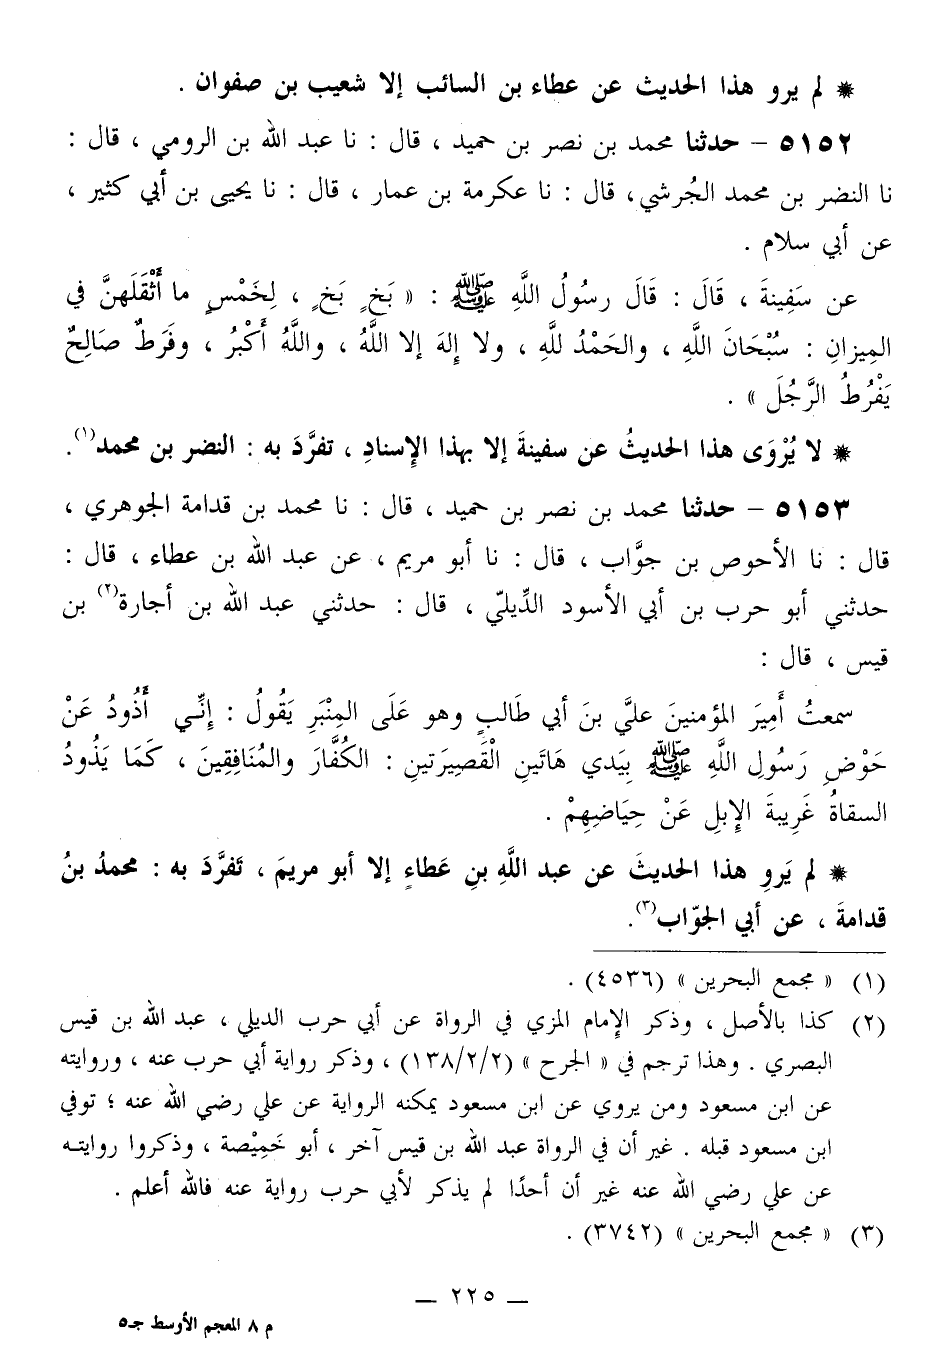 * لم يرو هذا الحديث عن عطاء بن السائب إلا شعيب بن صفوان .
٥١٥٢ - حدثنا محمد بن نصر بن حميد ، قال : نا عبد الله بن الرومي ، قال :
نا النضر بن محمد الجُرشي، قال : نا عكرمة بن عمار ، قال : نا يحيى بن أبي كثير ،
عن أبي سلام .
عن سَفِينةَ ، قَالَ : قَالَ رسُولُ اللَّهِ ﷺ : « بَخٍ بَخٍ ، لِخَمْسٍ ما أَثْقَلَهنَّ في
المِيزانِ : سُبْحَانَ اللَّهِ ، والحَمْدُ للَّهِ ، ولا إلهَ إلا اللَّهُ ، واللَّهُ أَكْبرُ ، وفَرَطٌ صَالِحٌ
يَفْرُطُ الرَّجُلَ » .
* لا يُرْوَى هذا الحديثُ عن سفينةَ إلا بهذا الإسنادِ ، تفرَّدَ به : النضر بن محمد(١).
٥١٥٣ - حدثنا محمد بن نصر بن حميد ، قال : نا محمد بن قدامة الجوهري ،
قال : نا الأحوص بن جوَّاب ، قال : نا أبو مريم ، عن عبد الله بن عطاء ، قال :
حدثني أبو حرب بن أبي الأسود الدِّيليّ ، قال : حدثني عبد الله بن أجارة(٢) بن
قيس ، قال :
سمعتُ أَمِيرَ المؤمنينَ عليَّ بنَ أبي طَالبٍ وهو عَلَى المِنْبَرِ يَقُولُ : إنِّي أَذُودُ عَنْ
حَوْضِ رَسُولِ اللَّهِ ﷺ بِيَدي هَاتَينِ الْقَصِيرَتينِ : الكُفَّارَ والمُنَافِقِينَ ، كَمَا يَذُودُ
السقاةُ غَرِيبةَ الإبلِ عَنْ حِيَاضِهِمْ .
* لم يَروِ هذا الحديثَ عن عبد اللَّهِ بنِ عَطاءٍ إلا أبو مريمَ ، تَفرَّدَ به : محمدُ بنُ
قدامةَ ، عن أبي الجوّاب(٣).
(١) « مجمع البحرين » (٤٥٣٦) .
(٢) كذا بالأصل ، وذكر الإمام المزي في الرواة عن أبي حرب الديلي ، عبد الله بن قيس
البصري . وهذا ترجم في « الجرح » (١٣٨/٢/٢) ، وذكر رواية أبي حرب عنه ، وروايته
عن ابن مسعود ومن يروي عن ابن مسعود يمكنه الرواية عن علي رضي الله عنه ؛ توفي
ابن مسعود قبله . غير أن في الرواة عبد الله بن قيس آخر ، أبو خَمِيْصة ، وذكروا روايته
عن علي رضي الله عنه غير أن أحدًا لم يذكر لأبي حرب رواية عنه فالله أعلم .
(٣) « مجمع البحرين » (٣٧٤٢) .
— ٢٢٥ —
م ٨ المعجم الأوسط جـ٥